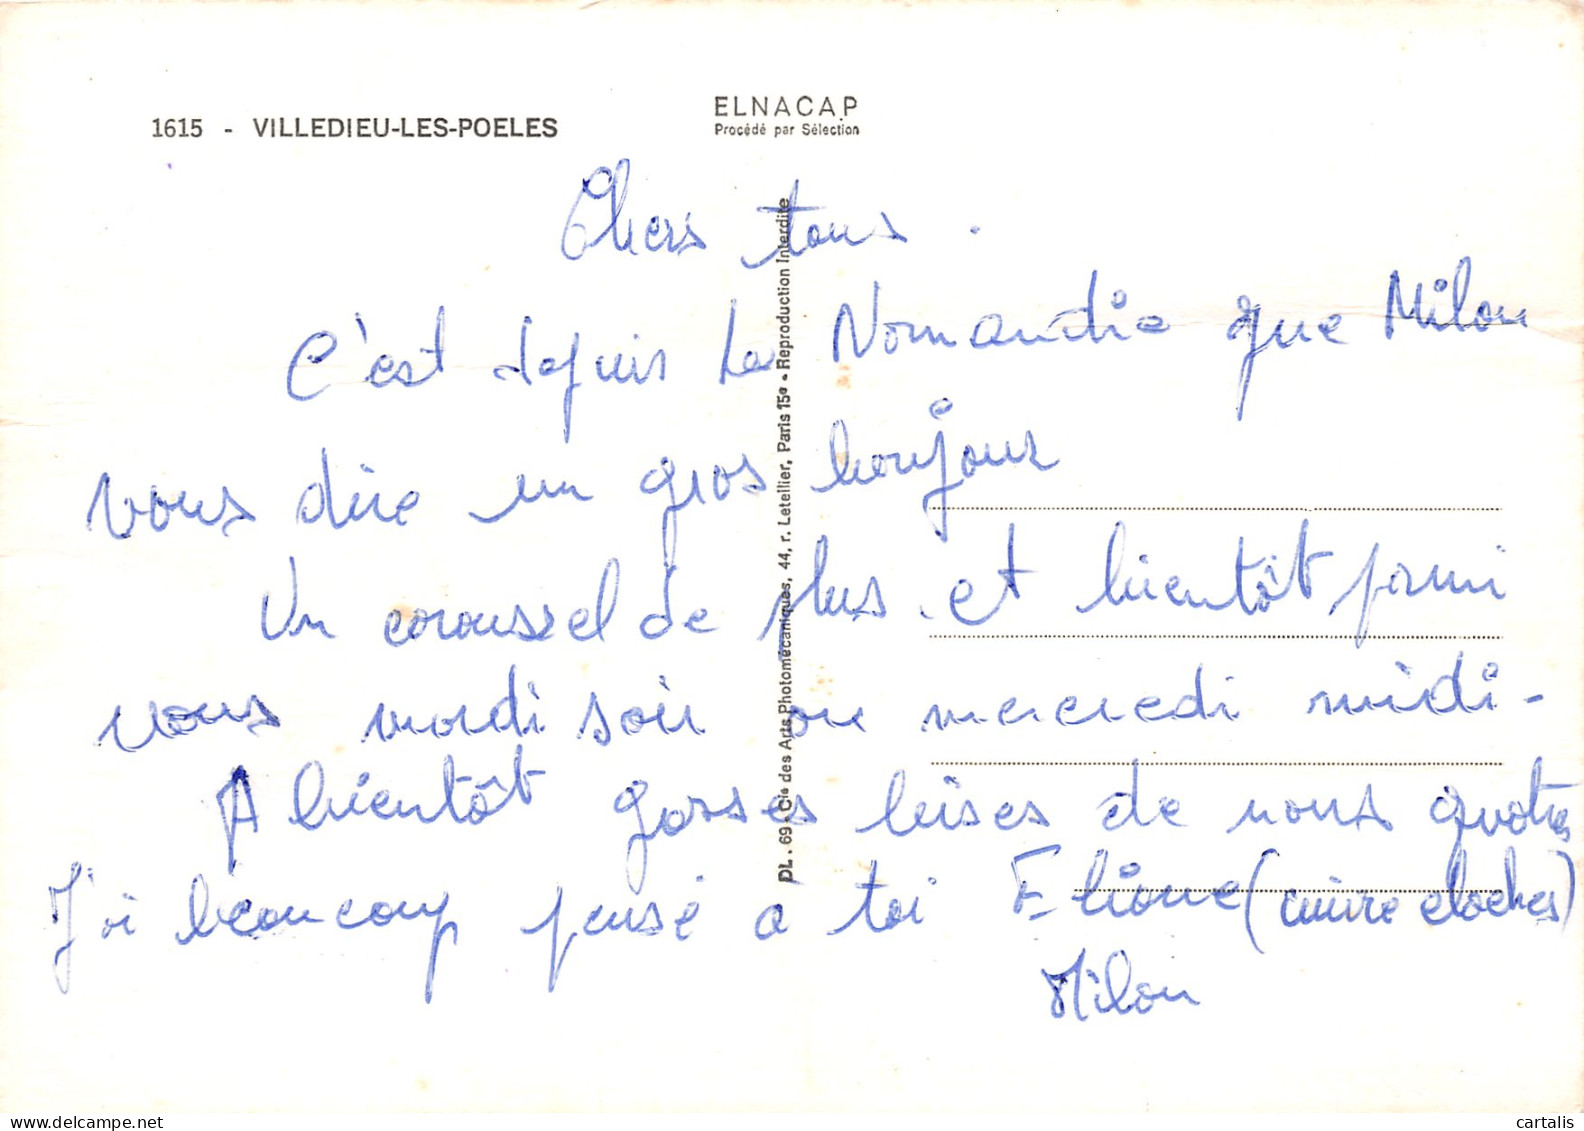 1615 - VILLEDIEU-LES-POELES
ELNACAP
Procédé par Sélection
Chers tous.
C'est depuis la Normandie que Milou
vous dire un gros bonjour
Un caroussel de plus et bientôt parmi
vous mardi soir ou mercredi midi -
A bientôt gosses beises de nous quotre
J'ai beaucoup pensé a toi Eliane (cuivre cloches)
Milou
PL. 69 - Cie des Arts Photomécaniques, 44, r. Letellier, Paris 15e - Reproduction Interdite
cartalis
cartalis.delcampe.net